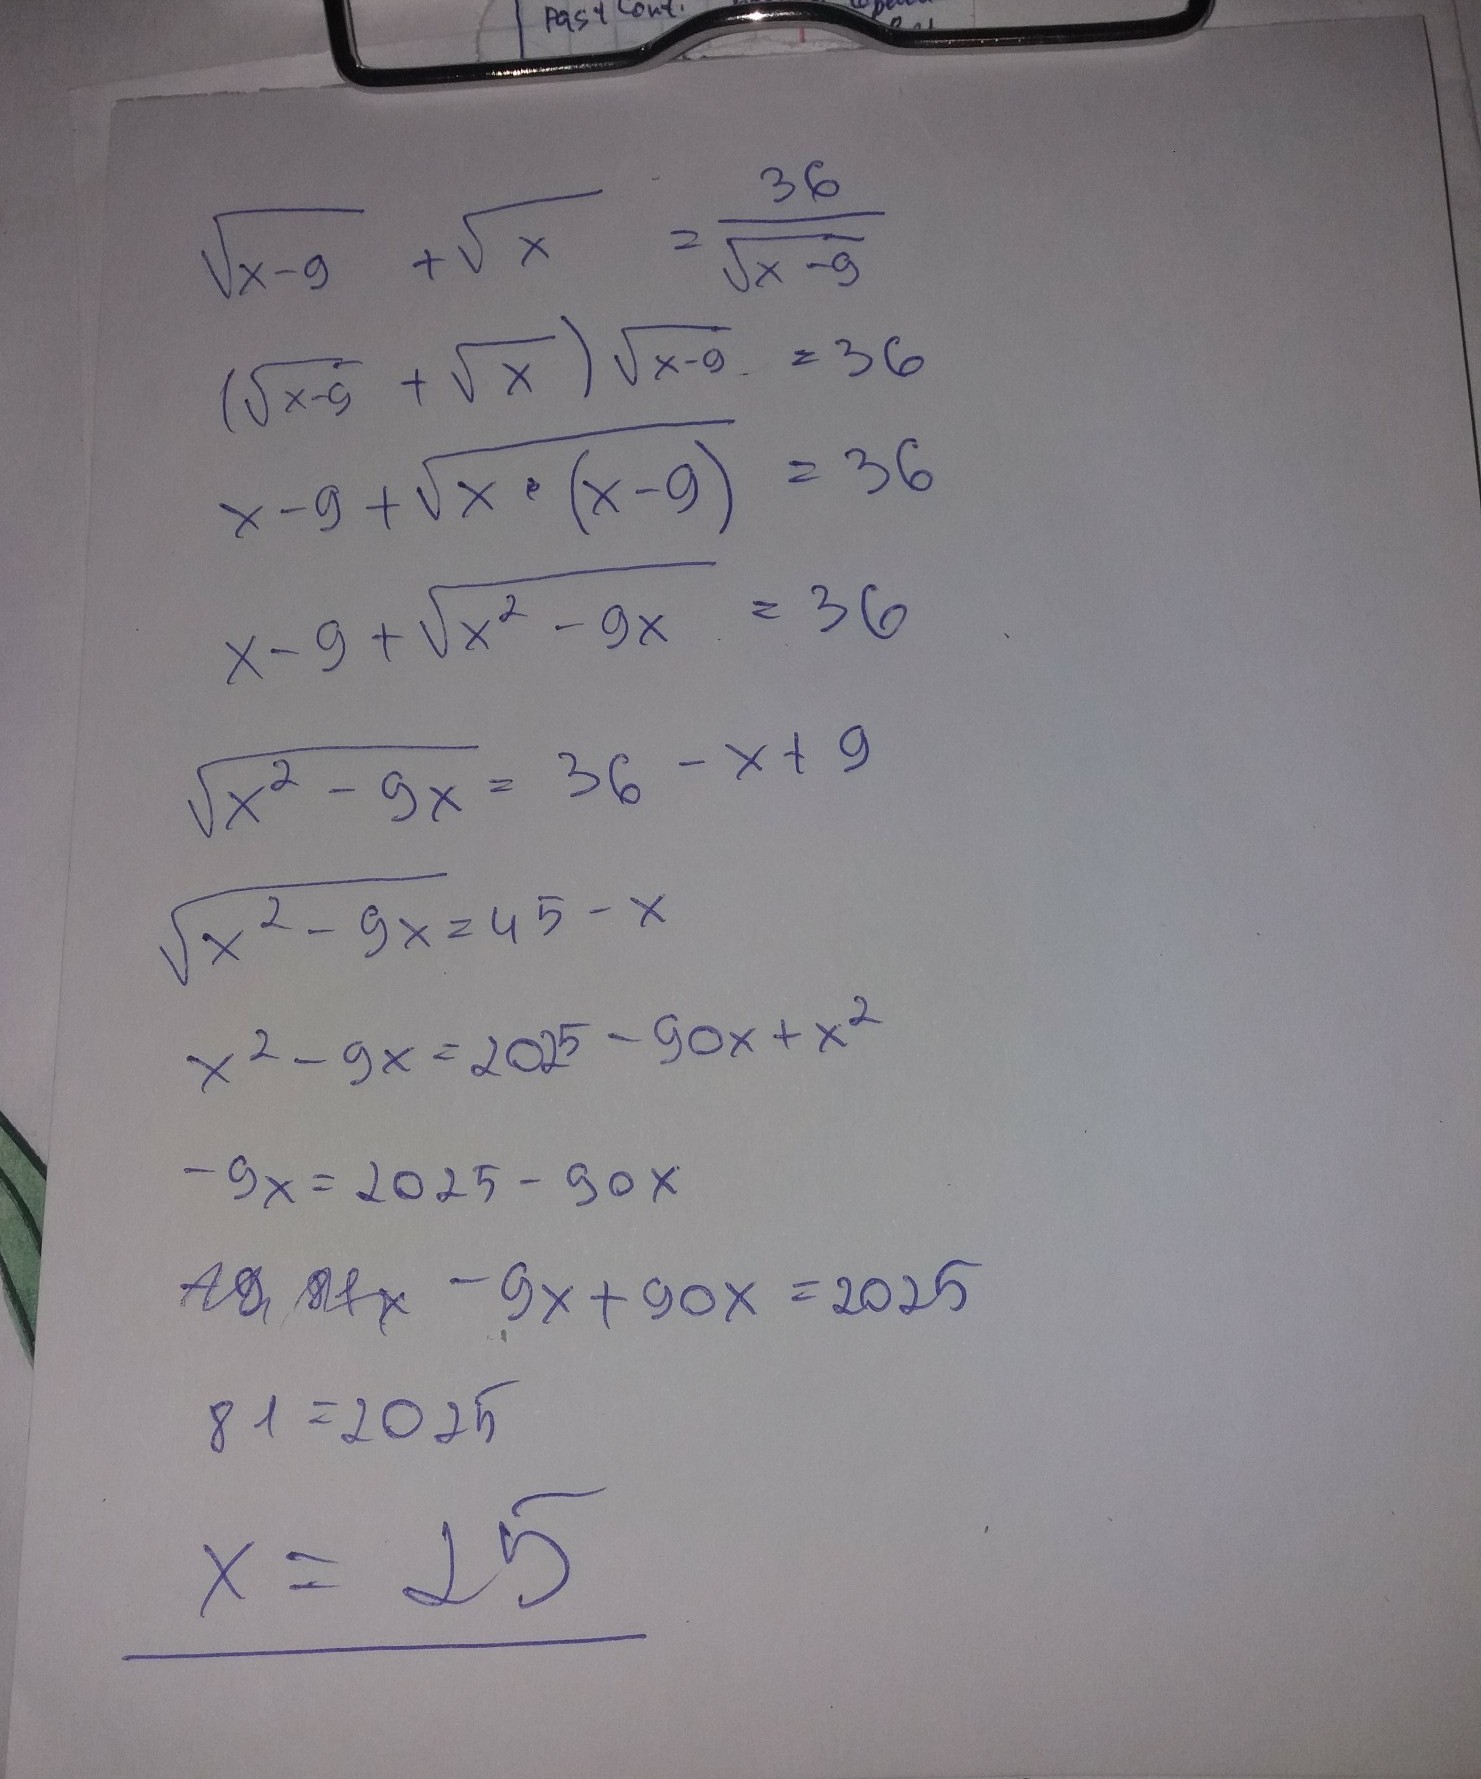 Past Cont.
√x-9 + √x = 36/√x-9
(√x-9 + √x) √x-9 = 36
x-9+√x·(x-9) = 36
x-9+√x² -9x = 36
√x² -9x = 36 -x+9
√x² -9x = 45 -x
x² -9x = 2025 -90x+x²
-9x = 2025 -90x
-9x+90x = 2025
81 = 2025
x = 25